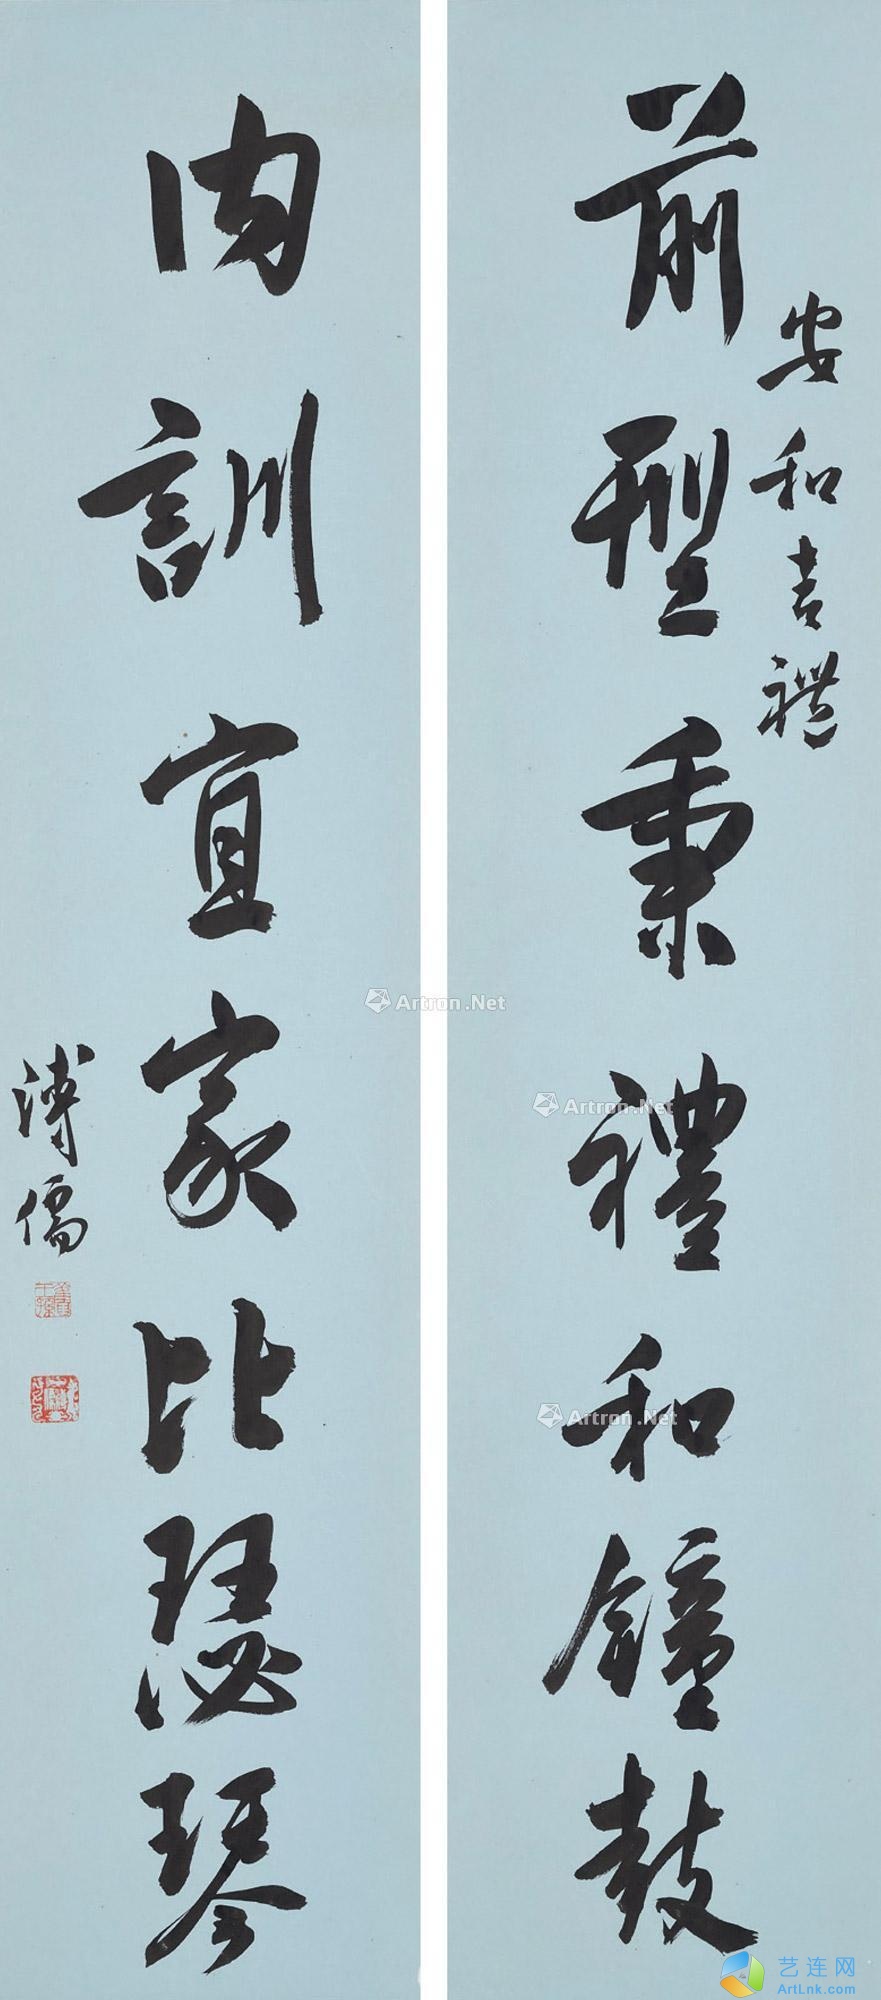 安和吉禮
前型秉禮和鐘鼓
内訓宜家比瑟琴
溥儒
Artron.Net
Artron.Net
Artron.Net
艺连网
ArtLnk.com